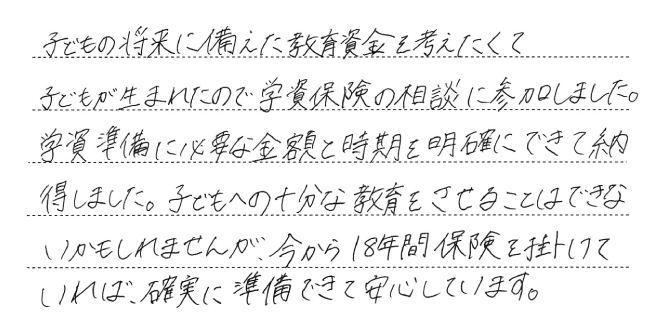 子どもの将来に備えた教育資金を考えたくて
子どもが生まれたので学資保険の相談に参加しました。
学資準備に必要な金額と時期を明確にできて納
得しました。子どもへの十分な教育をさせることはできな
いかもしれませんが、今から18年間保険を掛けて
いれば、確実に準備できて安心しています。